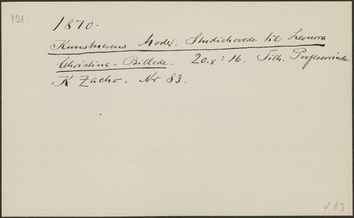 121
1870.
Kunstnerens Moder. Studiehovede til Leonora
Christina-Billede. 20.x:16. Tilh. Professorinde
K Zacho. Nr 83.